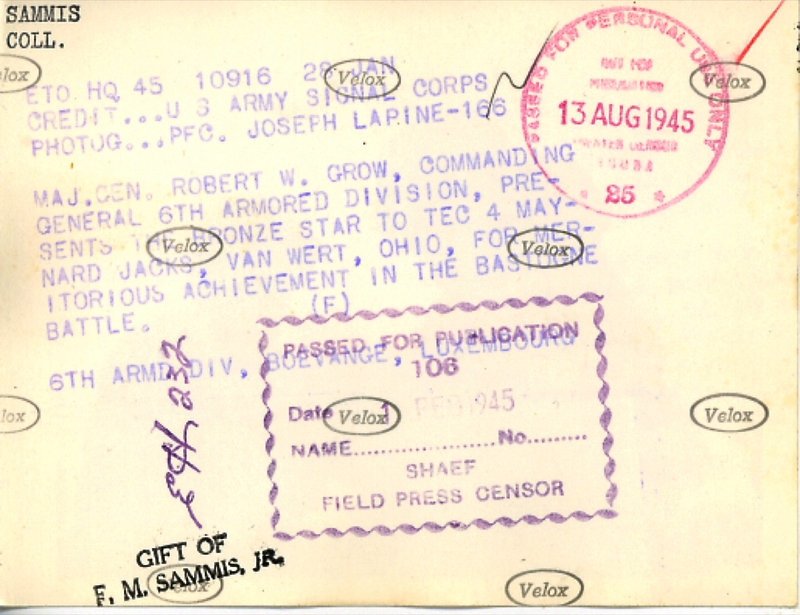 SAMMIS
COLL.
ETO HQ 45 10916 28 JAN
CREDIT...U S ARMY SIGNAL CORPS
PHOTOG...PFC. JOSEPH LAPINE-166
MAJ.GEN. ROBERT W. GROW, COMMANDING
GENERAL 6TH ARMORED DIVISION, PRE-
SENTS THE BRONZE STAR TO TEC 4 MAY-
NARD JACKS, VAN WERT, OHIO, FOR MER-
ITORIOUS ACHIEVEMENT IN THE BASTOGNE
BATTLE. (F)
6TH ARMD DIV, BOEVANGE, LUXEMBOURG
PASSED FOR PERSONAL USE ONLY
NOT FOR
PUBLICATION
13 AUG 1945
25
PASSED FOR PUBLICATION
106
Date 1 FEB 1945
NAME.....................No.........
SHAEF
FIELD PRESS CENSOR
GIFT OF
F. M. SAMMIS, JR.
Velox
Velox
Velox
Velox
Velox
Velox
Velox
Velox
Velox
Velox